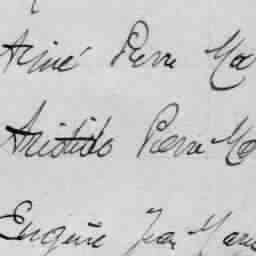 Aimé Pierre Ma
Aristide Pierre Ma
Eugène Jean Marie